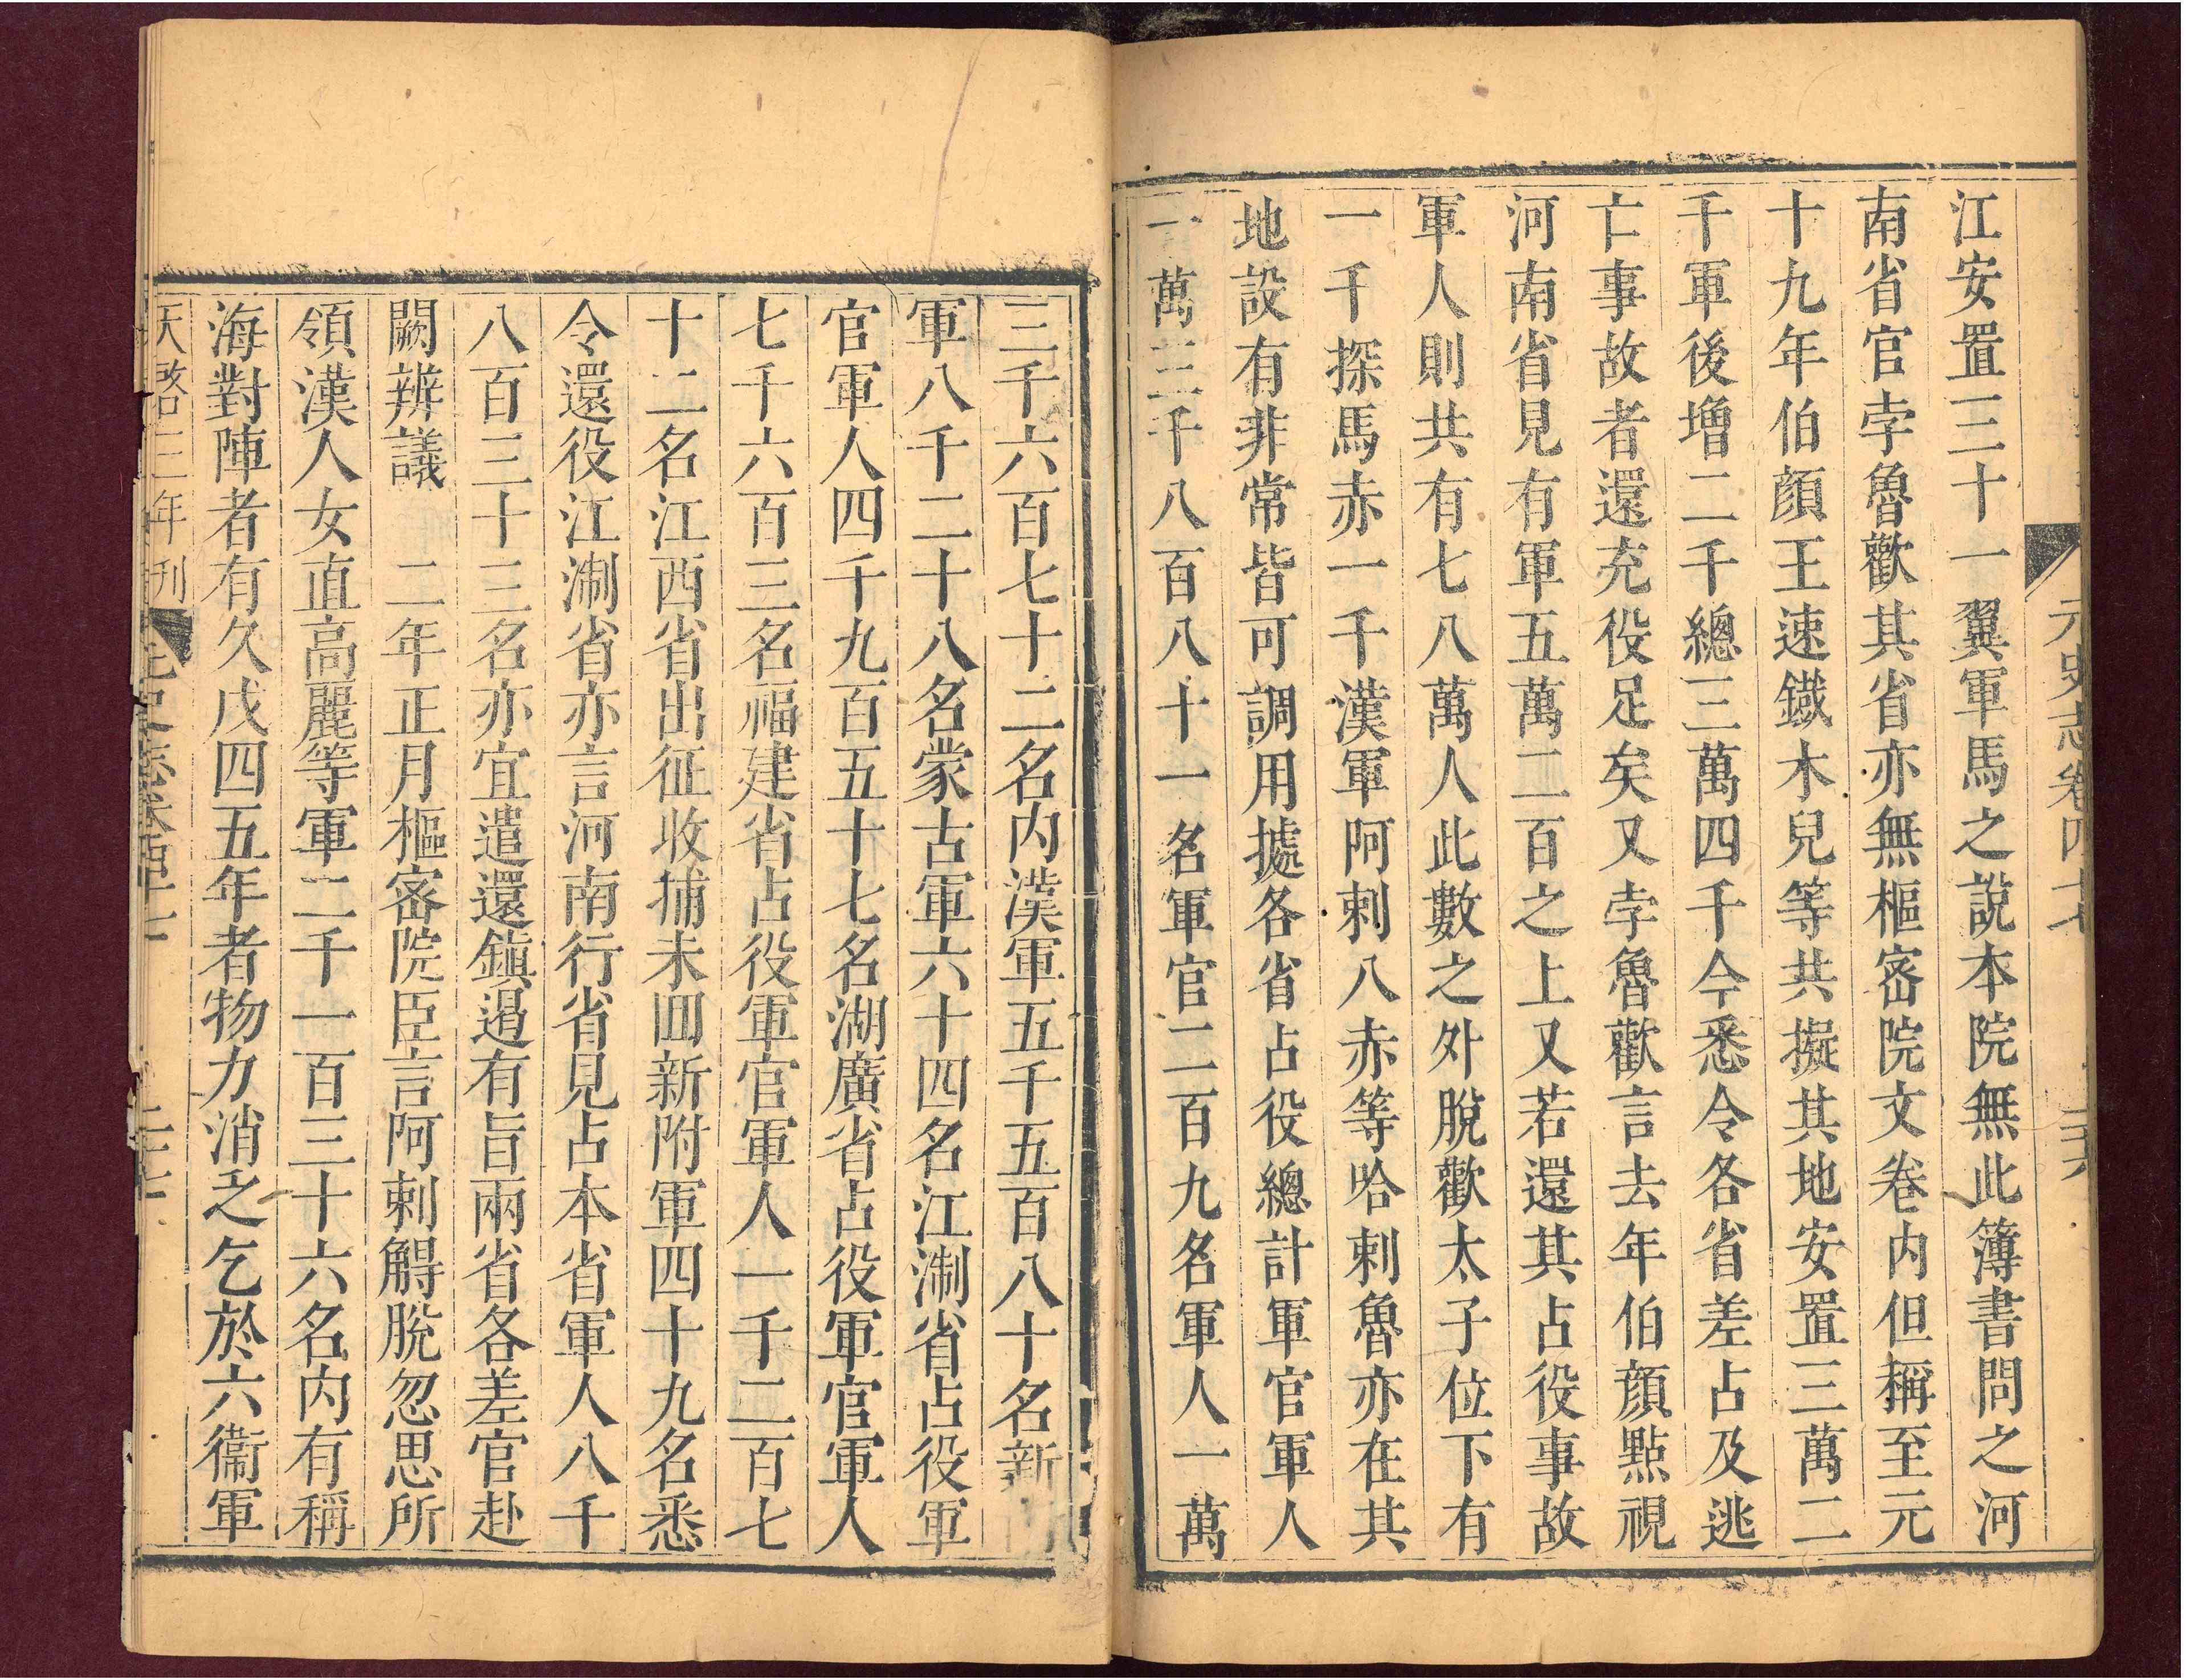 元史志卷四十七
二十六
江安置三十一翼軍馬之說本院無此簿書問之河
南省官孛魯歡其省亦無樞密院文卷内但稱至元
十九年伯顔王速鐵木兒等共擬其地安置三萬二
千軍後增二千總三萬四千今悉令各省差占及逃
亡事故者還充役足矣又孛魯歡言去年伯顔㸃視
河南省見有軍五萬二百之上又若還其占役事故
軍人則共有七八萬人此數之外脫歡太子位下有
一千探馬赤一千漢軍阿剌八赤等哈剌魯亦在其
地設有非常皆可調用據各省占役總計軍官軍人
一萬三千八百八十一名軍官二百九名軍人一萬
三千六百七十二名内漢軍五千五百八十名新
軍八千二十八名蒙古軍六十四名江淛省占役軍
官軍人四千九百五十七名湖廣省占役軍官軍人
七千六百三名福建省占役軍官軍人一千二百七
十二名江西省出征收捕未囬新附軍四十九名悉
令還役江淛省亦言河南行省見占本省軍人八千
八百三十三名亦宜遣還鎮遏有旨兩省各差官赴
闕辨議　二年正月樞密院臣言阿剌䚟脫忽思所
領漢人女直高麗等軍二千一百三十六名内有稱
海對陣者有久戍四五年者物力消乏乞於六衞軍
天啓三年刊
元史志卷四十七
二十七